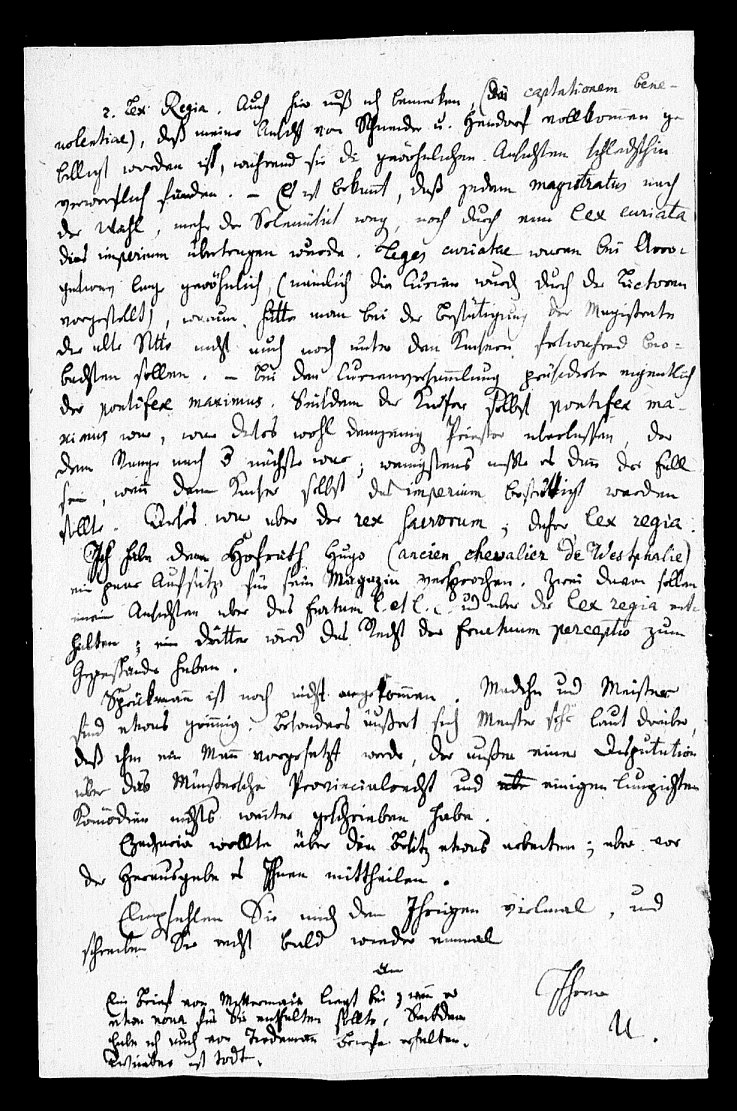 2. Lex Regia. Auch hier muß ich bemerken, (das captationem bene-
volentiae), daß meine Ansicht von Schneider u. Hendorf vollkommen ge-
billigt worden ist, während sie die gewöhnlichen Ansichten schlechthin
verwerflich fänden. – Es ist bekannt, daß jedem magistratus nach
der Wahl, mehr der Solemnität weg, noch durch eine lex curiata
das imperium übertragen wurde. Leges curiatae waren bei Arro-
gationen lang gewöhnlich, (nämlich die Curien wurden durch die Lictoren
vorgestellt), warum hätte man bei der Bestätigung der Magistrate
die alte Sitte nicht auch noch unter den Kaisern fortwährend beo-
bachten sollen. – Bei den Curienversammlung präsidirte eigentlich
der pontifex maximus. Seitdem der Kaiser selbst pontifex ma-
ximus war, war dieses wohl demjenigen Priester überlassen, der
dem Range nach der nächste war; wenigstens mußte es dann der Fall
sein, wenn dem Kaiser selbst das imperium bestätigt werden
sollte. Dieses war aber der rex sacrorum; daher lex regia.
Ich habe dem Hofrath Hugo (ancien chevalier de Westphalie)
ein paar Aufsätze für sein Magazin versprochen. Zwei davon sollen
meine Ansichten über das furtum l. et l. und über die lex regia ent-
halten; ein dritter wird das Recht der fructuum perceptio zum
Gegenstande haben.
Sprickmann ist noch nicht angekommen. Madihn und Meister
sind etwas grimmig. Besonders äußert sich Meister sehr laut darüber,
daß ihm ein Mann vorgesetzt werde, der außer einer Disputation
über das Münstersche Provincialrecht und einigen
Komödien nichts weiter geschrieben habe.
Zachariä wollte über den Besitz etwas arbeiten; aber vor
der Herausgabe es Ihnen mittheilen.
Empfehlen Sie mich den Ihrigen vielmal, und
schreiben Sie recht bald wieder einmal
Ihrem
U.
Ein Brief von Mittermaier liegt bei; wenn er
etwas für Sie enthalten sollte. Seitdem
habe ich auch von Tiedemann Briefe erhalten.
ist todt.